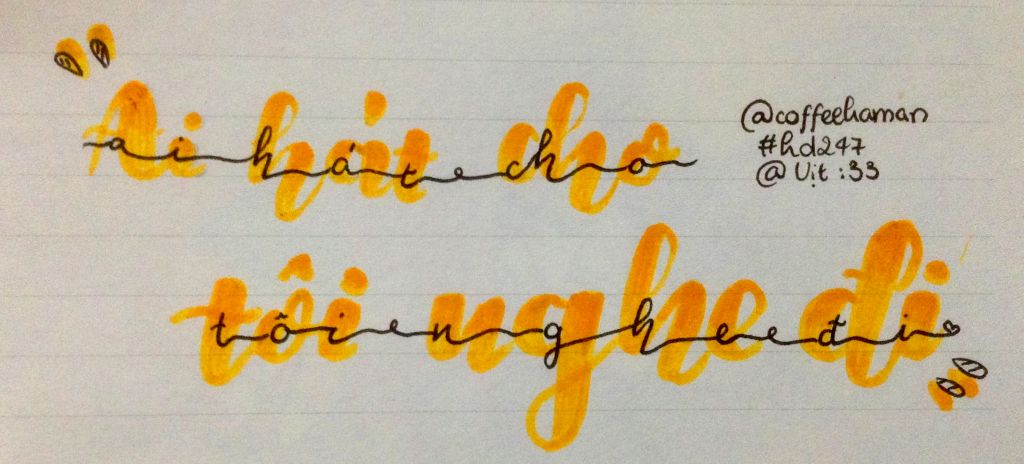 Ai hát cho
@coffeehaman
#hd247
@ Vịt :33
tôi nghe đi